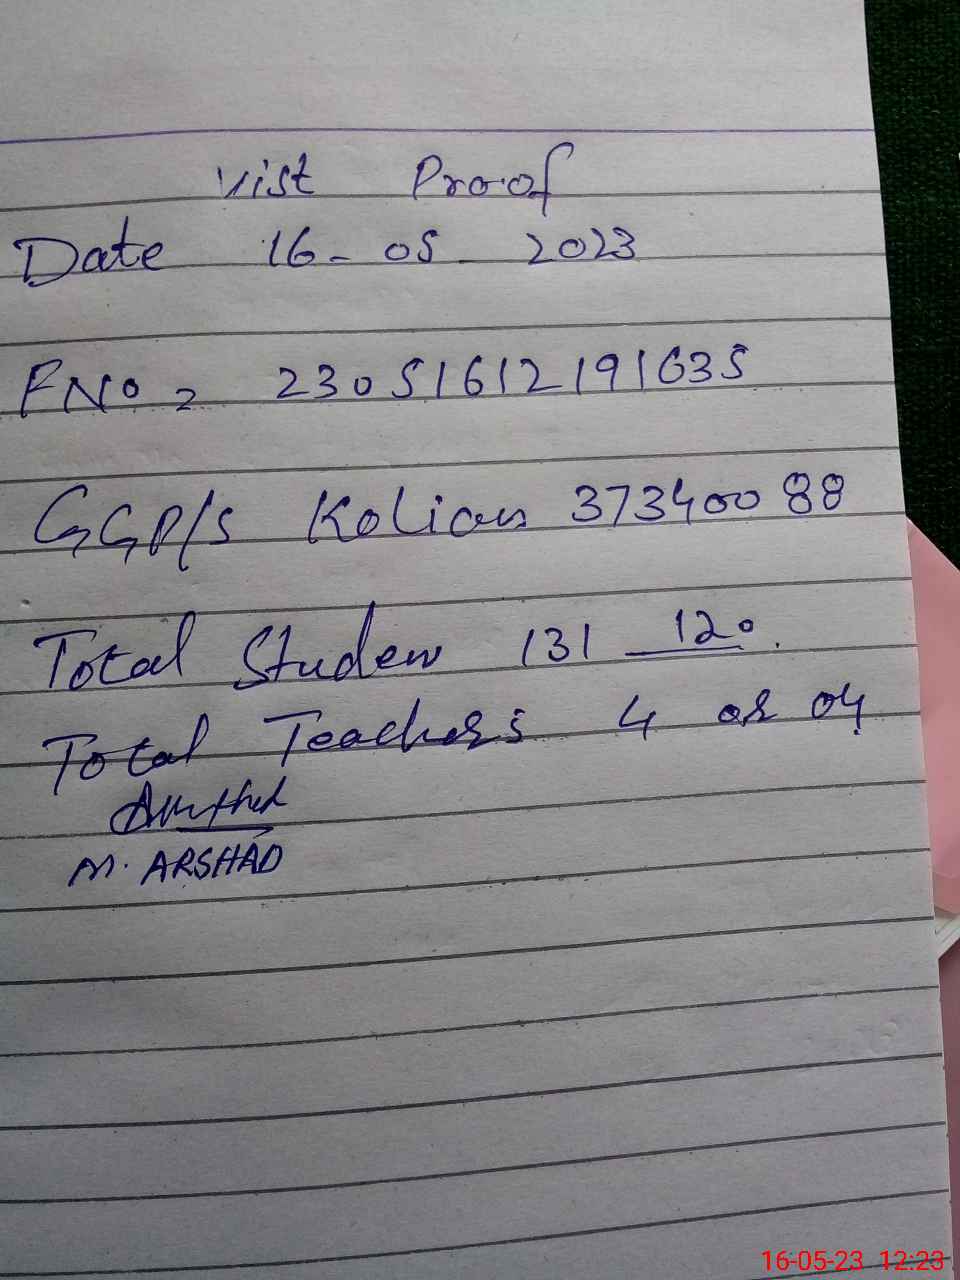 vist Proof
Date 16-05-2023
FNo = 23051612191635
GGP/S Kolian 37340088
Total Studen 131 120.
Total Teachers 4 or 04
M. ARSHAD
16-05-23 12:23